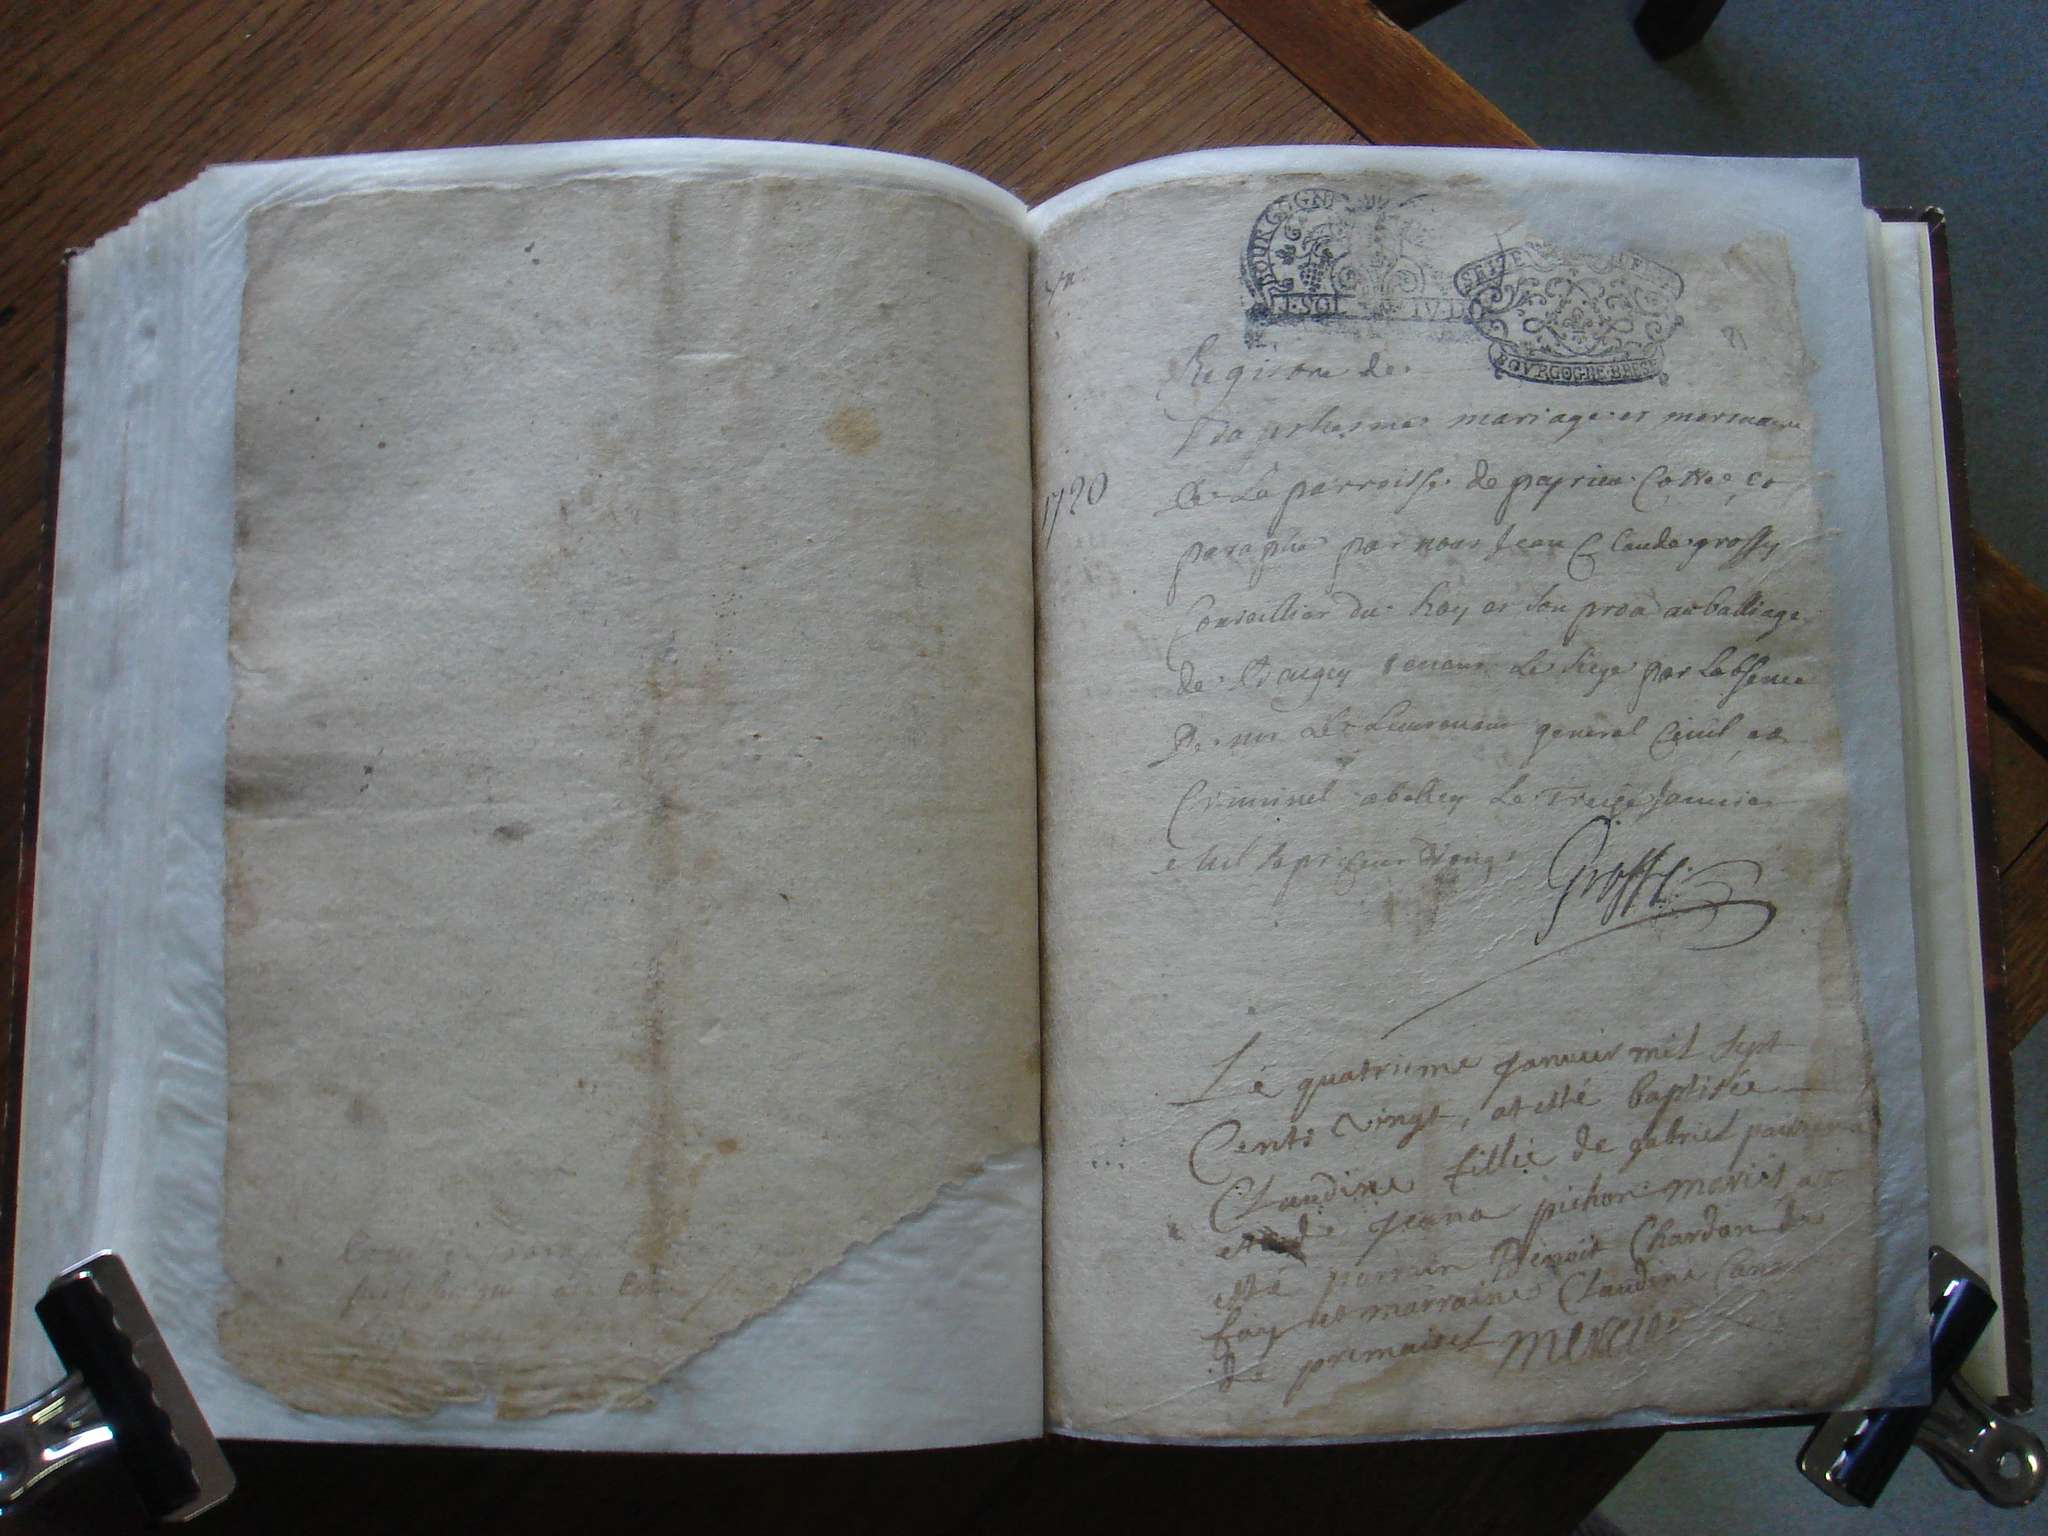 BOURGOGNE
II·SOL IV·D
SEIZE DENI
BOVRGOGNE·BRESSE
Registre de
mariage et mortuaire
De La parroisse de peyrieu Cotté et
paraphé par nous Jean Claude grossy
1720
Conseillier du Roy et son pro^r au balliage
de Baugey tenant Le siege par Labsence
De mr Le Lieutenant general Civil et
Criminel a belley Le Treize Janvier
mil sept cent vingt
Grossy
Le quatrieme janvier mil sept
Cents vingt, at esté baptisée
Claudine fillie de gabriel
et de jeana pichon mariés at
esté parrain Benoit Chardon de
fay et marraine Claudine
de premaisel mercier